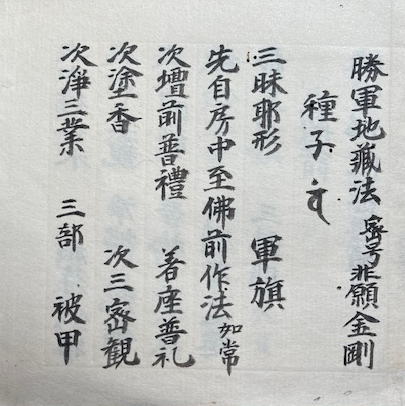 勝軍地蔵法 密号悲願金剛
種子
三昧耶形 軍旗
先自房中至佛前作法如常
次壇前普禮 着座普礼
次塗香 次三密観
次淨三業 三部 被甲